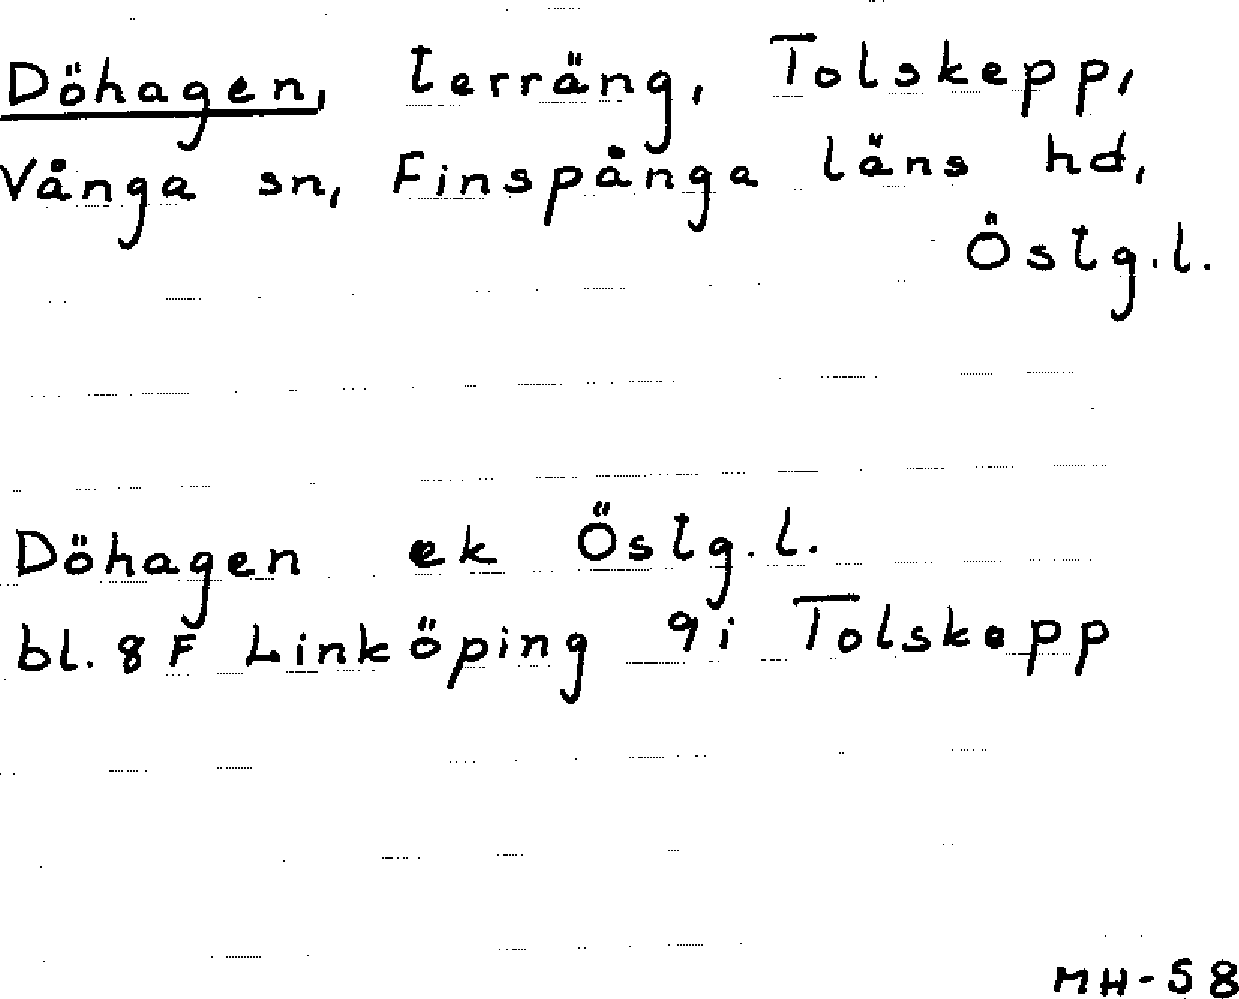 Döhagen, terräng, Tolskepp,
Vånga sn, Finspånga läns hd,
Östg.l.
Döhagen ek Östg.l.
bl. 8 F Linköping 9i Tolskepp
MH-58